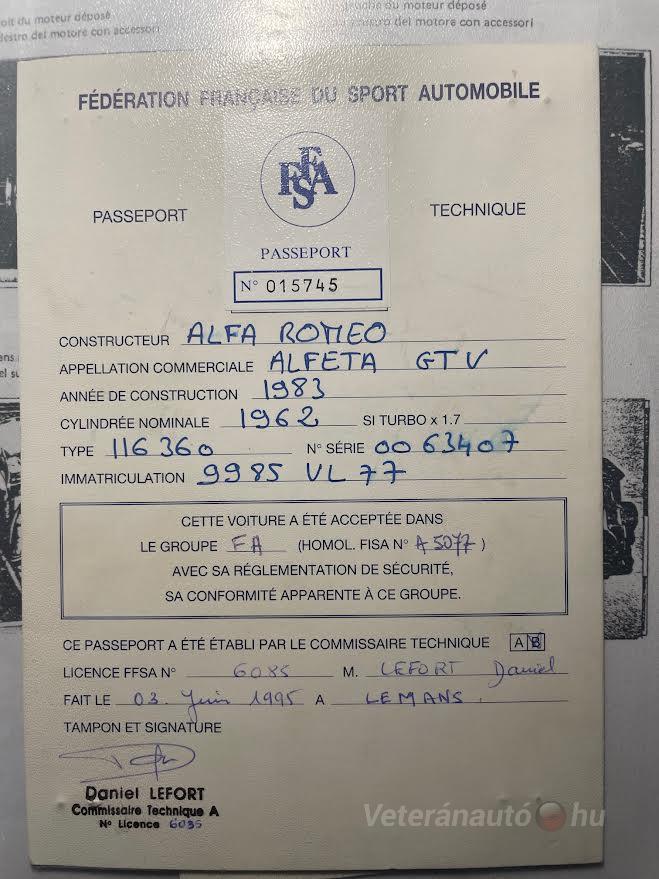 oit du moteur déposé
destro del motore con accessori
du moteur déposé
del motore con accessori
FÉDÉRATION FRANÇAISE DU SPORT AUTOMOBILE
FFSA
PASSEPORT TECHNIQUE
PASSEPORT
N° 015745
CONSTRUCTEUR ALFA ROMEO
APPELLATION COMMERCIALE ALFETA GTV
ANNÉE DE CONSTRUCTION 1983
CYLINDRÉE NOMINALE 1962 SI TURBO x 1.7
TYPE 116 360 N° SÉRIE 00 63407
IMMATRICULATION 9985 VL 77
CETTE VOITURE A ÉTÉ ACCEPTÉE DANS
LE GROUPE FA (HOMOL. FISA N° A 5077 )
AVEC SA RÉGLEMENTATION DE SÉCURITÉ,
SA CONFORMITÉ APPARENTE À CE GROUPE.
CE PASSEPORT A ÉTÉ ÉTABLI PAR LE COMMISSAIRE TECHNIQUE A B
LICENCE FFSA N° 6035 M. LEFORT Daniel
FAIT LE 03. Juin 1995 A LE MANS.
TAMPON ET SIGNATURE
Daniel LEFORT
Commissaire Technique A
N° Licence 6035
Veteránautó hu